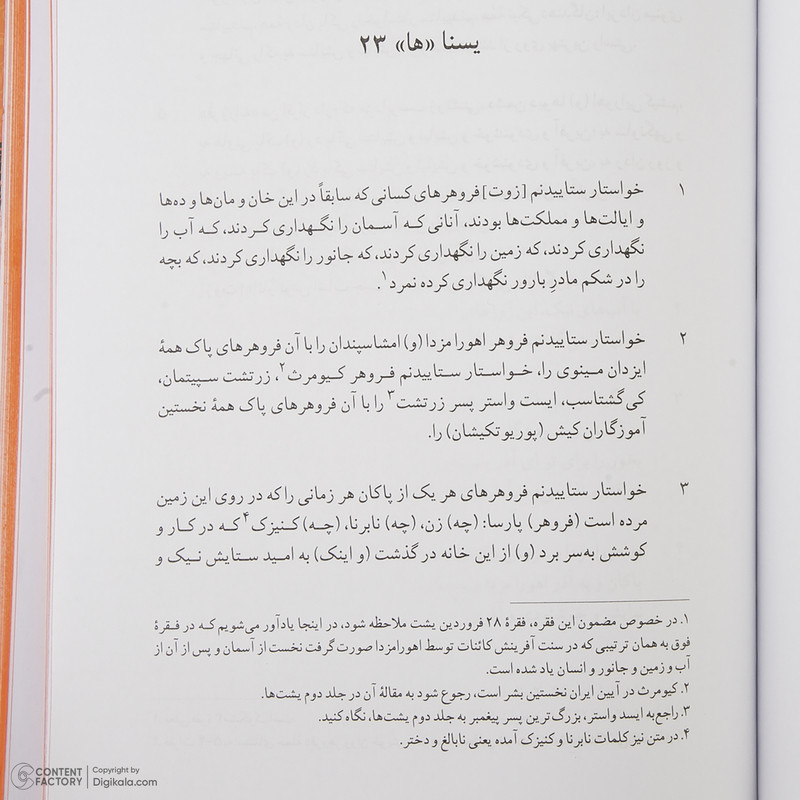 یسنا «ها» ۲۳
۱ خواستار ستاییدنم [زوت] فروهرهای کسانی که سابقاً در این خان و مان‌ها و ده‌ها
و ایالت‌ها و مملکت‌ها بودند، آنانی که آسمان را نگهداری کردند، که آب را
نگهداری کردند، که زمین را نگهداری کردند، که جانور را نگهداری کردند، که بچه
را در شکم مادرِ بارور نگهداری کرده نمرد۱.
۲ خواستار ستاییدنم فروهر اهورا مزدا (و) امشاسپندان را با آن فروهرهای پاک همهٔ
ایزدان مینوی را، خواستار ستاییدنم فروهر کیومرث۲، زرتشت سپیتمان،
کی‌گشتاسب، ایست واستر پسر زرتشت۳ را با آن فروهرهای پاک همهٔ نخستین
آموزگاران کیش (پوریوتکیشان) را.
۳ خواستار ستاییدنم فروهرهای هر یک از پاکان هر زمانی را که در روی این زمین
مرده است (فروهر) پارسا: (چه) زن، (چه) نابرنا، (چه) کنیزک۴ که در کار و
کوشش به‌سر برد (و) از این خانه درگذشت (و اینک) به امید ستایش نیک و
۱. در خصوص مضمون این فقره، فقرهٔ ۲۸ فروردین یشت ملاحظه شود، در اینجا یادآور می‌شویم که در فقرهٔ
فوق به همان ترتیبی که در سنت آفرینش کائنات توسط اهورامزدا صورت گرفت نخست از آسمان و پس از آن از
آب و زمین و جانور و انسان یاد شده است.
۲. کیومرث در آیین ایران نخستین بشر است، رجوع شود به مقالهٔ آن در جلد دوم یشت‌ها.
۳. راجع به ایسد واستر، بزرگ‌ترین پسر پیغمبر به جلد دوم یشت‌ها، نگاه کنید.
۴. در متن نیز کلمات نابرنا و کنیزک آمده یعنی نابالغ و دختر.
CONTENT FACTORY
Copyright by
Digikala.com